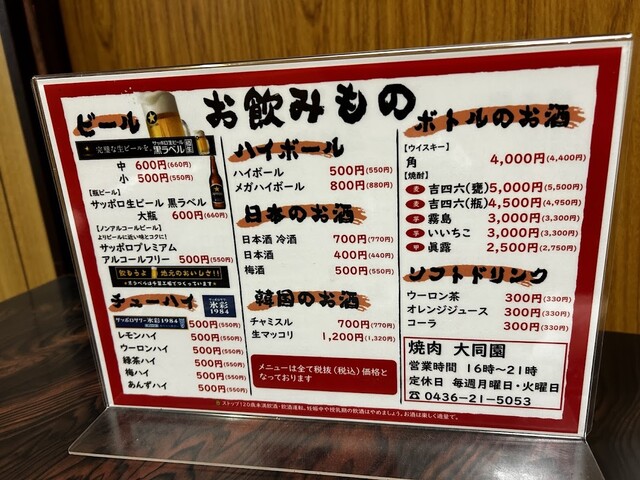 お飲みもの
ビール
完璧な生ビールを。
サッポロ生ビール
黒ラベル
中 600円(660円)
小 500円(550円)
【瓶ビール】
サッポロ生ビール 黒ラベル
大瓶 600円(660円)
【ノンアルコールビール】
よりビールに近い味とコクに!
サッポロプレミアム
アルコールフリー 500円(550円)
飲もうよ 地元のおいしさ!!
チューハイ
サッポロサワー
氷彩
1984
サッポロサワー氷彩1984 500円(550円)
レモンハイ 500円(550円)
ウーロンハイ 500円(550円)
緑茶ハイ 500円(550円)
梅ハイ 500円(550円)
あんずハイ 500円(550円)
ハイボール
ハイボール 500円(550円)
メガハイボール 800円(880円)
日本のお酒
日本酒 冷酒 700円(770円)
日本酒 400円(440円)
梅酒 500円(550円)
韓国のお酒
チャミスル 700円(770円)
生マッコリ 1,200円(1,320円)
メニューは全て税抜(税込)価格と
なっております
ボトルのお酒
【ウイスキー】
角 4,000円(4,400円)
【焼酎】
麦 吉四六(甕) 5,000円(5,500円)
麦 吉四六(瓶) 4,500円(4,950円)
芋 霧島 3,000円(3,300円)
麦 いいちこ 3,000円(3,300円)
甲 眞露 2,500円(2,750円)
ソフトドリンク
ウーロン茶 300円(330円)
オレンジジュース 300円(330円)
コーラ 300円(330円)
焼肉 大同園
営業時間 16時~21時
定休日 毎週月曜日・火曜日
☎ 0436-21-5053
ストップ!20歳未満飲酒・飲酒運転。妊娠中や授乳期の飲酒はやめましょう。お酒は楽しく適量で。